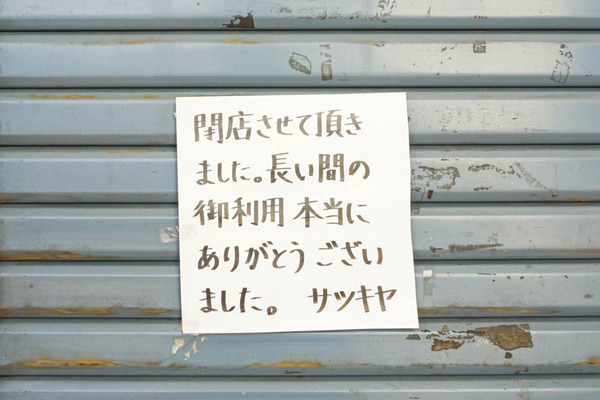 閉店させて頂き
ました。長い間の
御利用 本当に
ありがとうござい
ました。 サツキヤ